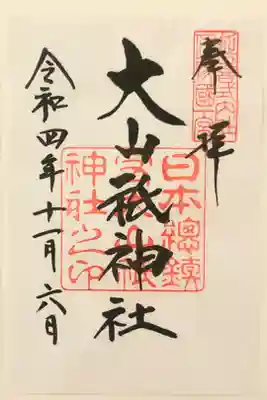 奉拝
大山祇神社
日本總鎮
守大山祇
神社之印
令和四年十一月六日